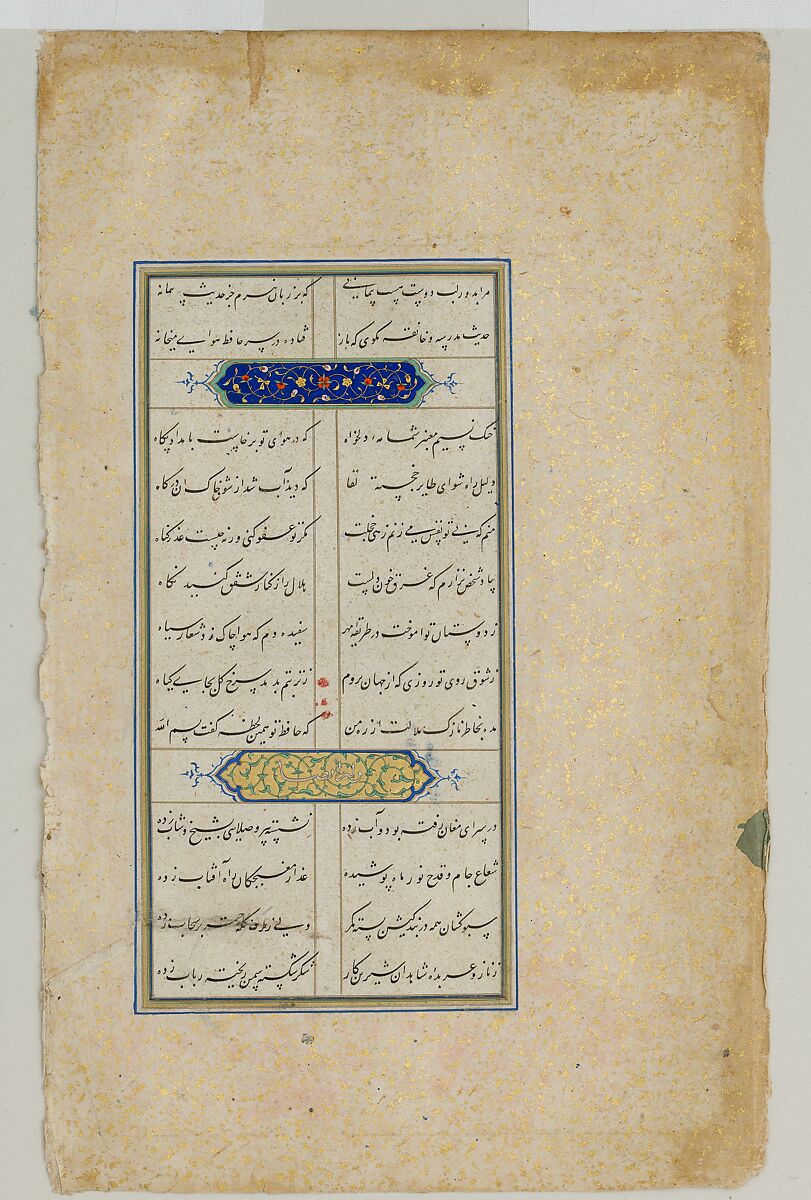 مرا بدور لب دوست هست پیمانی که بر زبان نبرم جز حدیث پیمانه
حدیث مدرسه و خانقه مگوی که باز فتاده در سر حافظ هوای میخانه
خنک نسیم معنبر شمامه دلخواه که در هوای تو برخاست بامداد پگاه
دلیل راه شو ای طایر خجسته لقا که دیده آب شد از شوق خاک آن درگاه
منم که بی تو نفس می زنم زهی خجلت مگر تو عفو کنی ورنه چیست عذر گناه
بیاد شخص نزارم که غرق خون دلست هلال را ز کنار شفق کنید نگاه
ز دوستان تو آموخت در طریقه مهر سفیده دم که هوا چاک زد شعار سیاه
ز شوق روی تو روزی که از جهان بروم ز تربتم بدمد سرخ گل بجای گیاه
مده بخاطر نازک ملالت از ره من که حافظ تو همین لحظه گفت بسم الله
وله ایضا
در سرای مغان رفته بود و آب زده نشسته پیر و صلایی بشیخ و شاب زده
شعاع جام و قدح نور ماه پوشیده عذار مغبچگان راه آفتاب زده
سبو کشان همه در بندگیش بسته کمر ولی ز ترک کله چتر بر سحاب زده
ز ناز و عربده شاهدان شیرین کار شکر شکسته سمن ریخته رباب زده